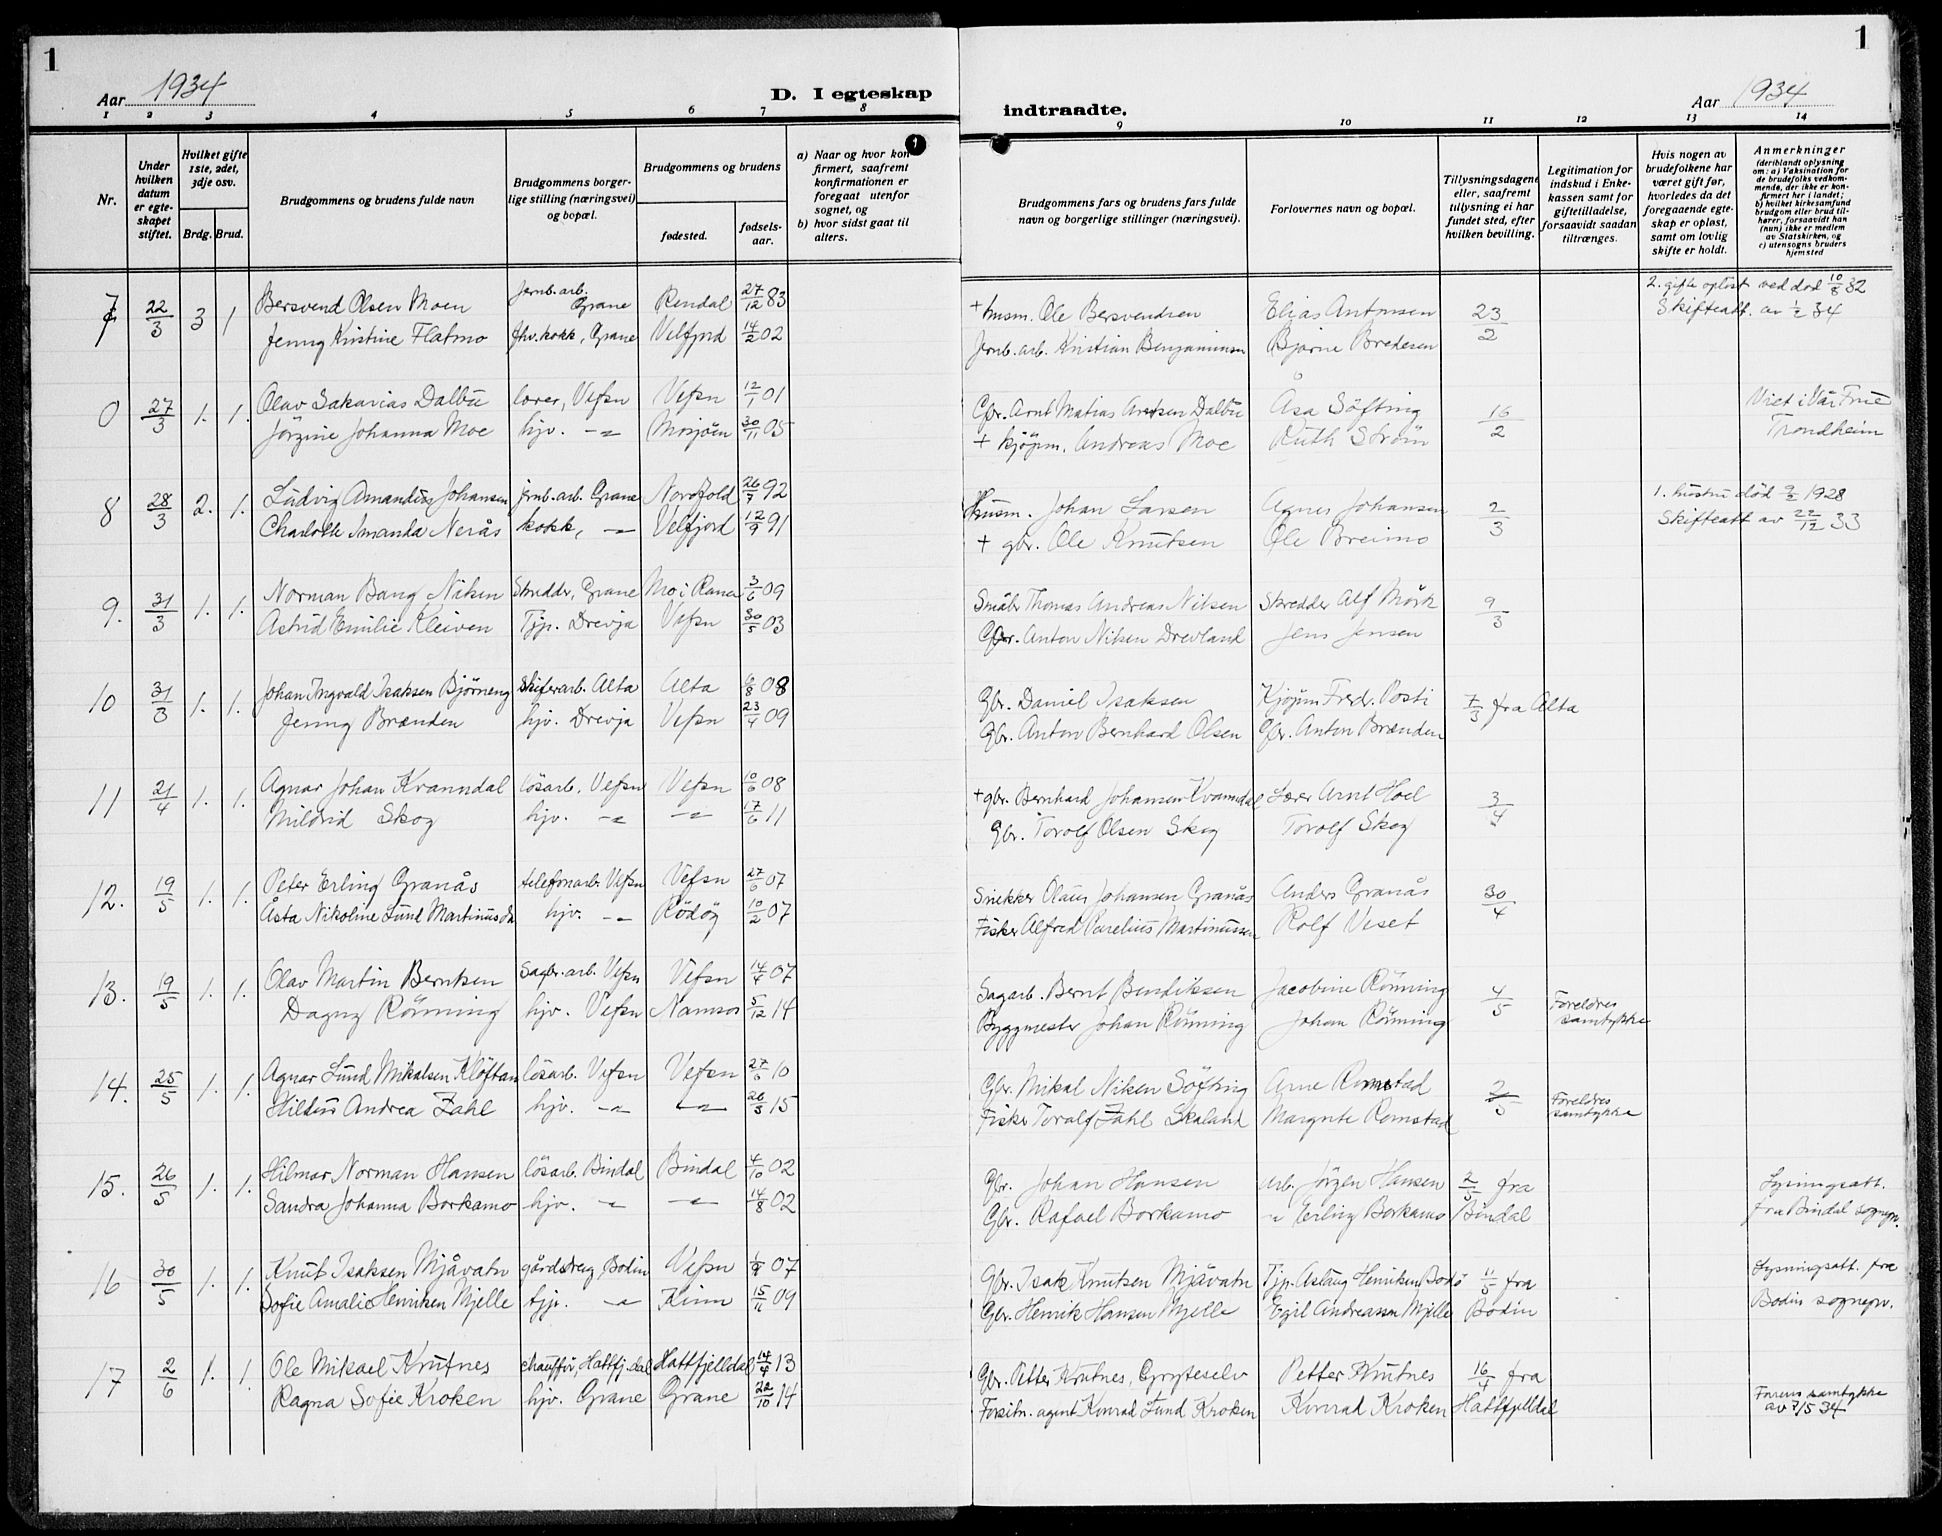 1
Aar 1934
D. I egteskap
1 2 3 4 5 6 7 8
Nr.
Under hvilken datum er egteskapet stiftet.
Hvilket gifte 1ste, 2det, 3dje osv.
Brdg. Brud.
Brudgommens og brudens fulde navn
Brudgommens borgerlige stilling (næringsvei) og bopæl.
Brudgommens og brudens
fødested.
fødselsaar.
a) Naar og hvor konfirmert, saafremt konfirmationen er foregaat utenfor sognet, og
b) hvor sidst gaat til alters.
7 22/3 3 1 Bersvend Olsen Moen Jernb.arb. Grane Rendal 27/12 83
Jenny Kristine Flatmo fhv. kokk, Grane Velfjord 14/2 02
0 27/3 1. 1. Olav Sakarias Dalbu lærer, Vefsn Vefsn 12/1 01
Jörgine Johanna Moe hjv. -"- Mosjöen 30/11 05
8 28/3 2. 1. Ludvig Amandus Johansen jernb.arb. Grane Nordfold 26/7 92
Charlotte Amanda Nerås kokk, -"- Velfjord 12/9 91
9. 31/3 1. 1. Norman Bang Nilsen Skredder, Grane Mo i Rana 3/6 09
Astrid Emilie Kleiven Tjp. Drevja Vefsn 30/5 03
10 31/3 1. 1. Johan Ingvald Isaksen Björneng Skiferarb. Alta Alta 6/8 08
Jenny Brænden hjv. Drevja Vefsn 23/4 09
11 21/4 1. 1. Agnar Johan Kvanndal lösarb. Vefsn Vefsn 10/6 08
Mildrid Skog hjv. -"- -"- 17/6 11
12. 19/5 1. 1. Peter Erling Granås telefonarb. Vefsn Vefsn 27/6 07
Åsta Nikoline Lund Martinussen hjv. -"- Rödöy 10/2 07
13. 19/5 1. 1. Olav Martin Berntsen Sagbr.arb. Vefsn Vefsn 14/4 07
Dagny Rönning hjv. Vefsn Namsos 5/12 14
14. 25/5 1. 1. Agnar Lund Mikalsen Klöftan lösarb. Vefsn Vefsn 27/6 10
Hildus Andrea Zahl hjv. -"- -"- 26/5 15
15. 26/5 1. 1. Hilmar Norman Hansen lösarb. Bindal Bindal 4/10 02
Sandra Johanna Borkamo hjv. -"- -"- 14/8 02
16 30/5 1. 1. Knut Isaksen Mjåvatn gårdsdreng, Bodin Vefsn 1/9 07
Sofie Amalie Henriksen Mjelle tjp. -"- Kinn 15/11 09
17 2/6 1. 1. Ole Mikael Krutnes chauffør, Hattfj.dal Hattfjelldal 14/4 13
Ragna Sofie Kroken hjv. Grane Grane 22/10 14
1
Aar 1934
indtraadte.
9 10 11 12 13 14
Brudgommens fars og brudens fars fulde navn og borgerlige stillinger (næringsvei).
Forlovernes navn og bopæl.
Tillysningsdagene eller, saafremt tillysning ei har fundet sted, efter hvilken bevilling.
Legitimation for indskud i Enkekassen samt for giftetilladelse, forsaavidt saadan tiltrænges.
Hvis nogen av brudefolkene har været gift før, hvorledes da det foregaaende egteskap er opløst, samt om lovlig skifte er holdt.
Anmerkninger (deriblandt oplysning om: a) Vaksination for de brudefolks vedkommende, der ikke er konfirmert her i landet; b) hvilket kirkesamfund brudgom eller brud tilhører, forsaavidt han (hun) ikke er medlem av Statskirken, og c) utensogns bruders hjemsted
+ husm. Ole Bersvendsen Elias Antonsen 23/2 2. gifte opløst ved død 10/8 32
Jernb.arb. Kristian Benjaminsen Bjarne Bredesen Skifteatt. av 1/2 34
Gbr. Arnt Matias Arntsen Dalbu Åsa Söfting 16/2 Viet i Vår Frue
+ kjöpm. Andreas Moe Ruth Ström Trondheim
Husm. Johan Larsen Agnes Johansen 2/3 1. hustru död 9/2 1928
+ gbr. Ole Knutsen Ole Breimo Skifteatt av 22/12 33
Småbr Thomas Andreas Nilsen Skredder Alf Mörk 9/3
Gbr. Anton Nilsen Drevland Jens Jensen
Gbr. Daniel Isaksen Kjöpm Fred. Posti 7/3 fra Alta
Gbr. Anton Bernhard Olsen Gbr. Anton Brænden
+ gbr. Bernhard Johansen Kvanndal Lærer Arnt Hoel 3/4
Gbr. Torolf Olsen Skog Torolf Skog
Snekker Olaus Johansen Granås Anders Granås 30/4
Fisker Alfred Parelius Martinussen Rolf Veset
Sagarb. Bernt Bendiksen Jacobine Rönning 4/5 Foreldres samtykke
Byggmester Johan Rönning Johan Rönning
Gbr. Mikal Nilsen Söfting Arne Romstad 2/5 Foreldres samtykke
Fisker Toralf Zahl Skaland Margrete Romstad
Gbr. Johan Hansen arb. Jörgen Hansen 2/5 fra Lysningsatt.
Gbr. Rafael Borkamo -"- Erling Borkamo Bindal fra Bindal sognepr.
Gbr. Isak Knutsen Mjåvatn Tjp. Aslaug Henriksen Bodø 11/5 fra Lysningsatt. fra
Gbr. Henrik Hansen Mjelle Egil Andreassen Mjelle Bodin Bodin sognepr.
Gbr. Petter Krutnes, Gryteselv Petter Krutnes 16/4 fra
Forsikr. agent Konrad Lund Kroken Konrad Kroken Hattfjelldal Farens samtykke av 7/5 34